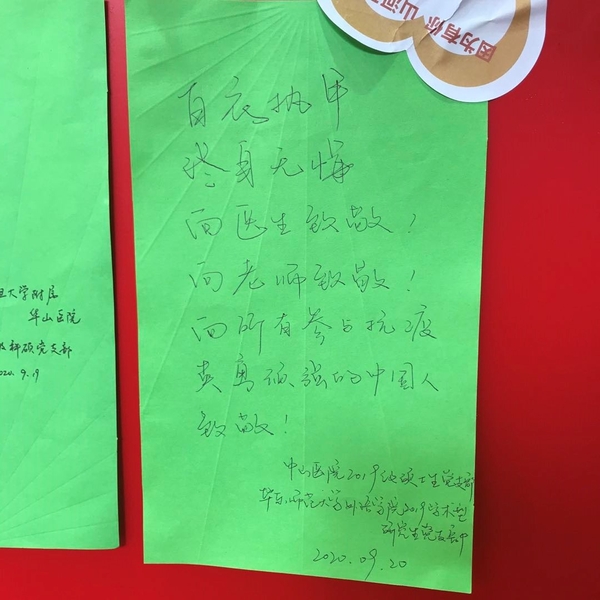 因为有你 山河
旦大学附属
华山医院
科硕党支部
020.9.19
白衣执甲
终身无悔
向医生致敬！
向老师致敬！
向所有参与抗疫
英勇顽强的中国人
致敬！
中山医院2019级硕士生党支部
华东师范大学外语学院2019学术型
研究生党支部
2020.09.20